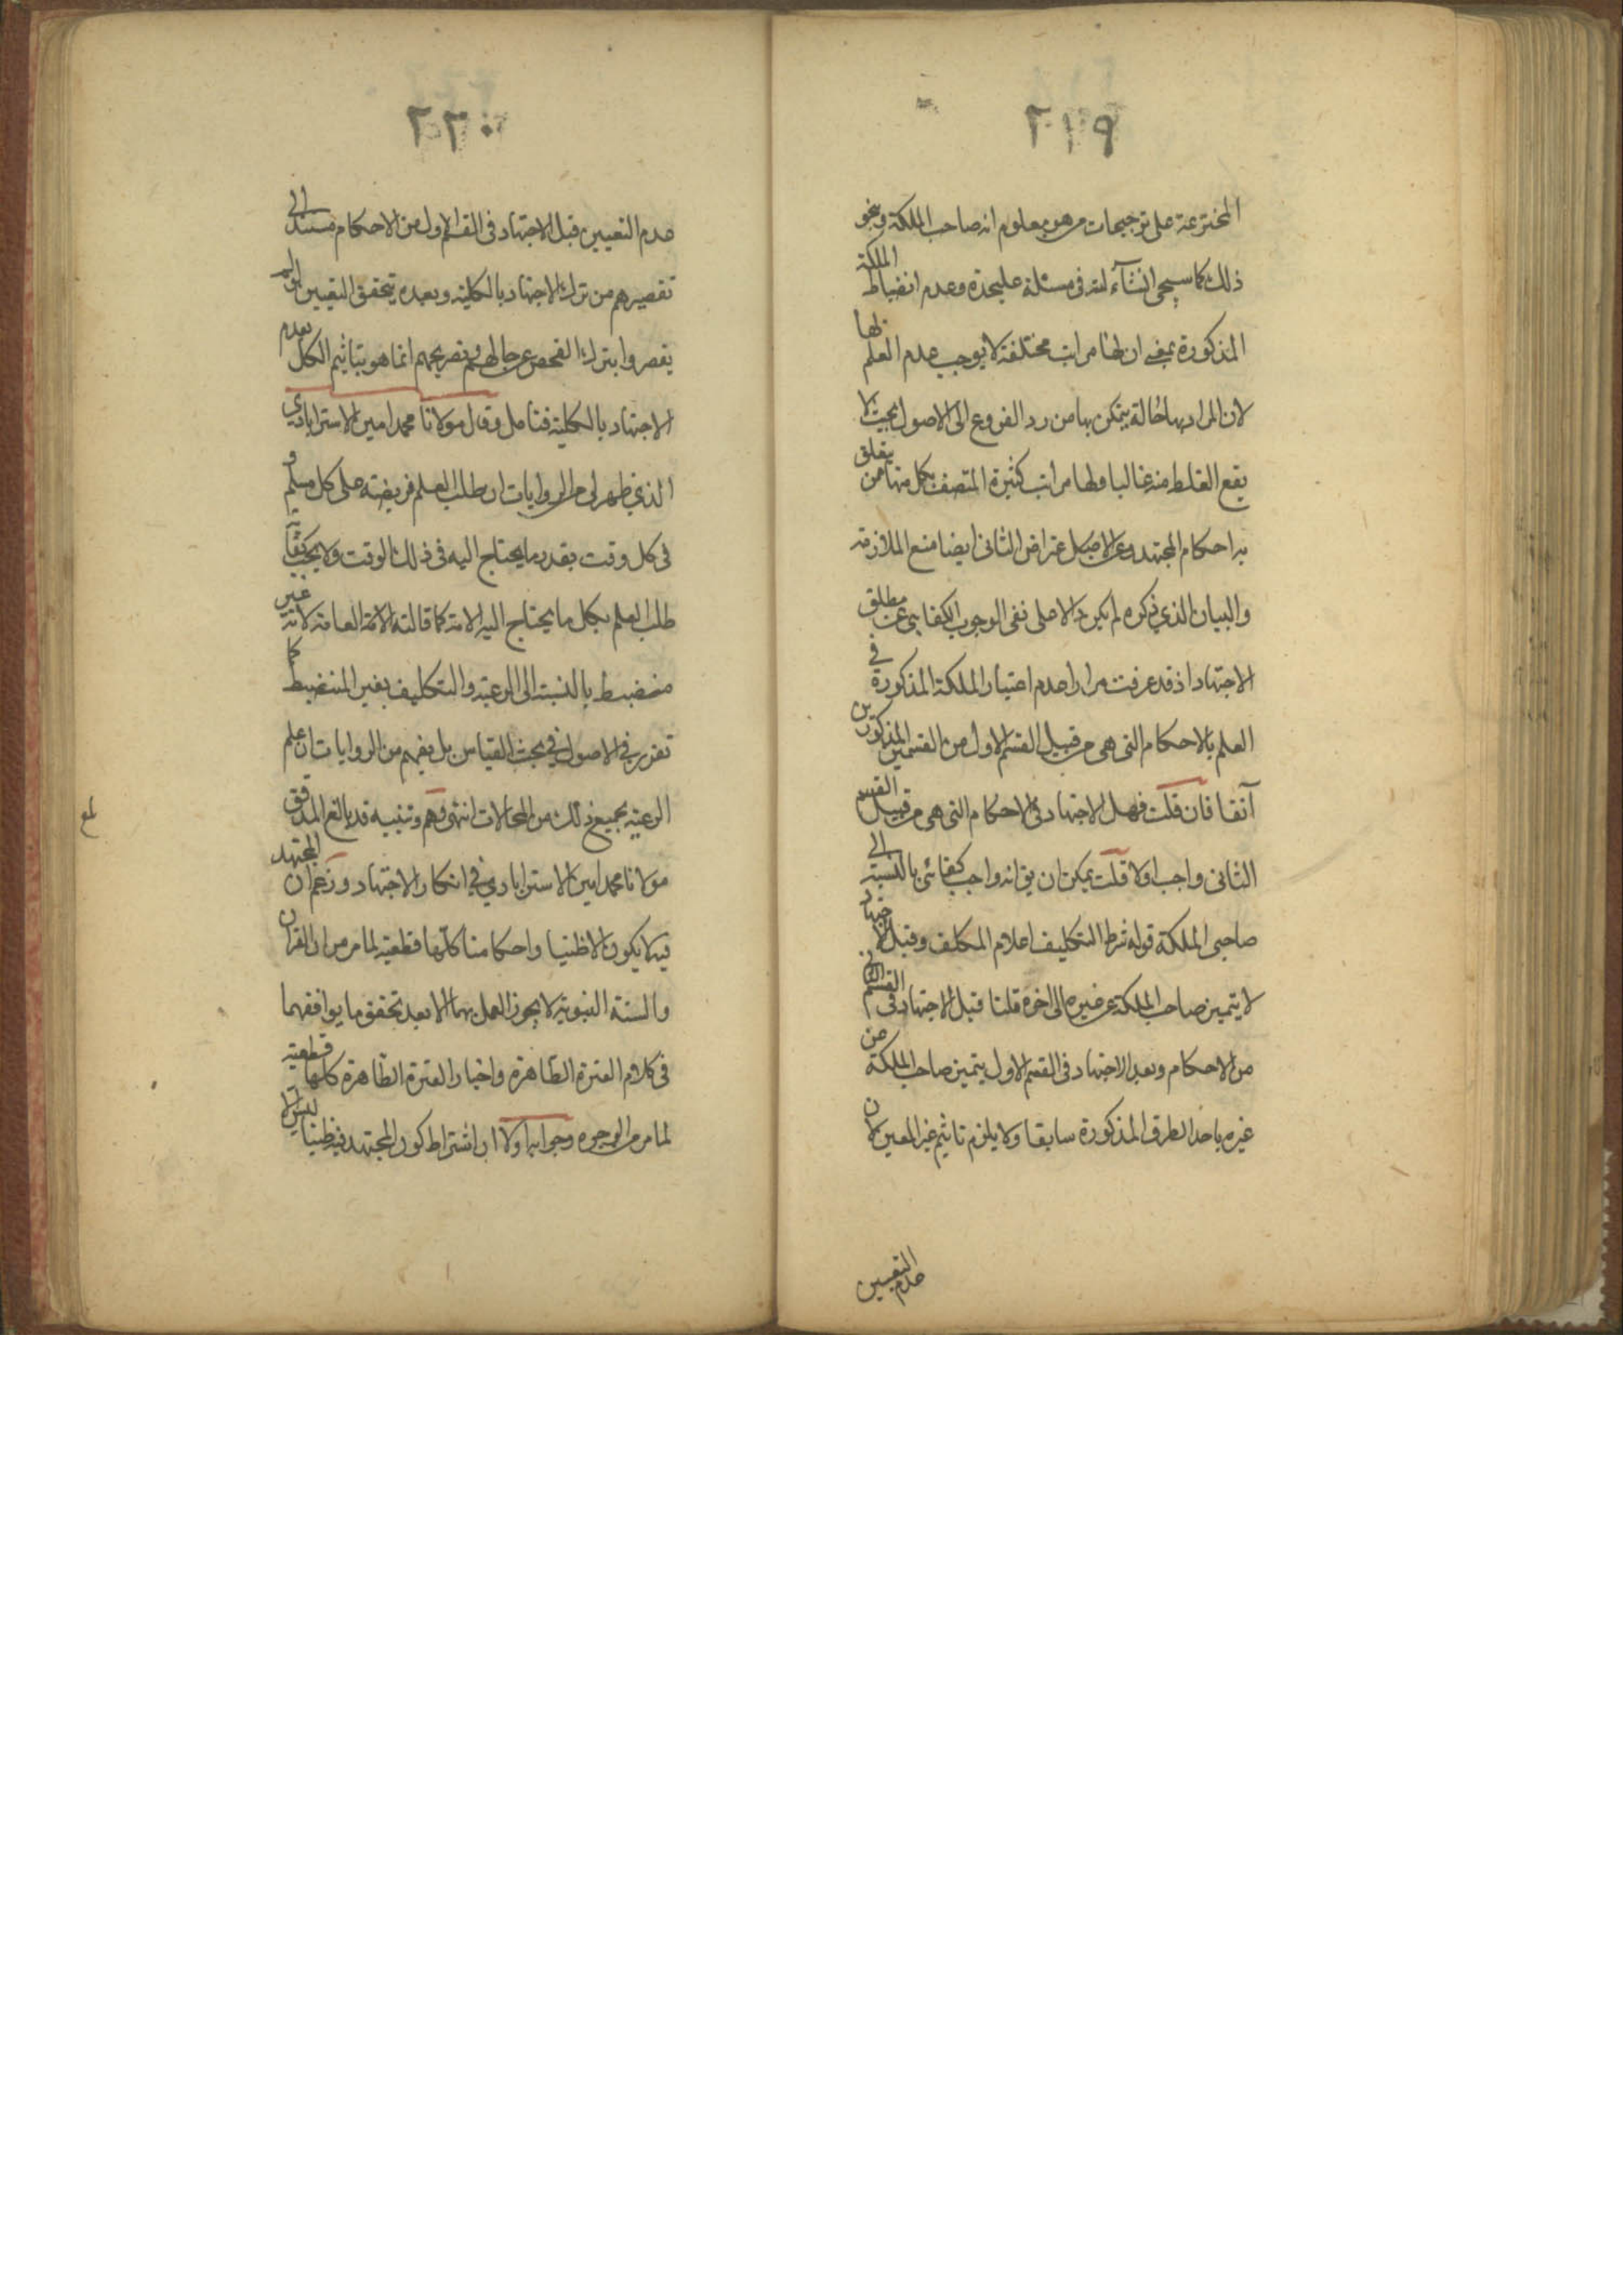 ٢١٩
المخترعة على توجيهات من هو معلوم انه صاحب الملكة ونحو
ذلك كما سيجى انشآء الله فى مسئلة عليحدة وعدم انضباط الملكة
المذكورة بمعنى ان لها مراتب مختلفة لا يوجب عدم العلم بها
لان المراد بها حالة يتمكن بها من رد الفروع الى الاصول بحيث لا
يقع الغلط منه غالبا ولها مراتب كثيرة المتصف بكل منها من يتعلق
به احكام المجتهد وعن الاعتراض الثانى ايضا منع الملازمة
والبيان الذي ذكره لم يكن دالا على نفى الوجوب الكفايى عن مطلق
الاجتهاد اذ قد عرفت مرارا عدم اعتبار الملكة المذكورة في
العلم بالاحكام التى هى من قبيل القسم الاول من القسمين المذكورين
آنفا فان قلت فهل الاجتهاد فى الاحكام التى هى من قبيل القسم
الثانى واجب اولا قلت يمكن ان يق انه واجب كفائى بالنسبة الى
صاحبى الملكة قوله شرط التكليف اعلام المكلف وقبل الاجتهاد
لا يتميز صاحب الملكة عن غيره الى اخره قلنا قبل الاجتهاد فى القسم الاول
من الاحكام وبعد الاجتهاد فى القسم الاول يتميز صاحب الملكة من
غيره باحد الطرق المذكورة سابقا ولا يلزم تاثيم غير المعين لان
عدم التعيين
٢٢٠
عدم التعيين قبل الاجتهاد فى القسم الاول من الاحكام مستند الى
تقصيرهم من ترك الاجتهاد بالكلية وبعده يتحقق التعيين ان لم
يقصروا بترك الفحص عن حالهم وتصريحهم انما هو بتاثيم الكل بعدم
الاجتهاد بالكلية فتامل وقال مولانا محمد امين الاسترابادي
الذي ظهر لى من الروايات ان طلب العلم فريضة على كل مسلم و
فى كل وقت بقدر ما يحتاج اليه فى ذلك الوقت ولا يجب كفاية
طلب العلم بكل ما يحتاج اليه الامة كما قالته الائمة العامة لانه غير
منضبط بالنسبة الى الرعية والتكليف بغير المنضبط كما
تقرر في الاصول في بحث القياس بل يفهم من الروايات ان علم
الرعية بجميع ذلك من المحالات انتهى وهم وتنبيه قد بالغ المدقق
مولانا محمد امين الاسترابادي في انكار الاجتهاد وزعم ان المجتهد
فيه لا يكون الا ظنيا واحكامنا كلها قطعية لما مر من ان القران
والسنة النبوية لا يجوز العمل بهما الا بعد تحقق ما يوافقهما
فى كلام العترة الطاهرة واخبار العترة الطاهرة كلها قطعية
لما مر من الوجوه وجوابه اولا ان اشتراط كون المجتهد فيه ظنيا ليس الا